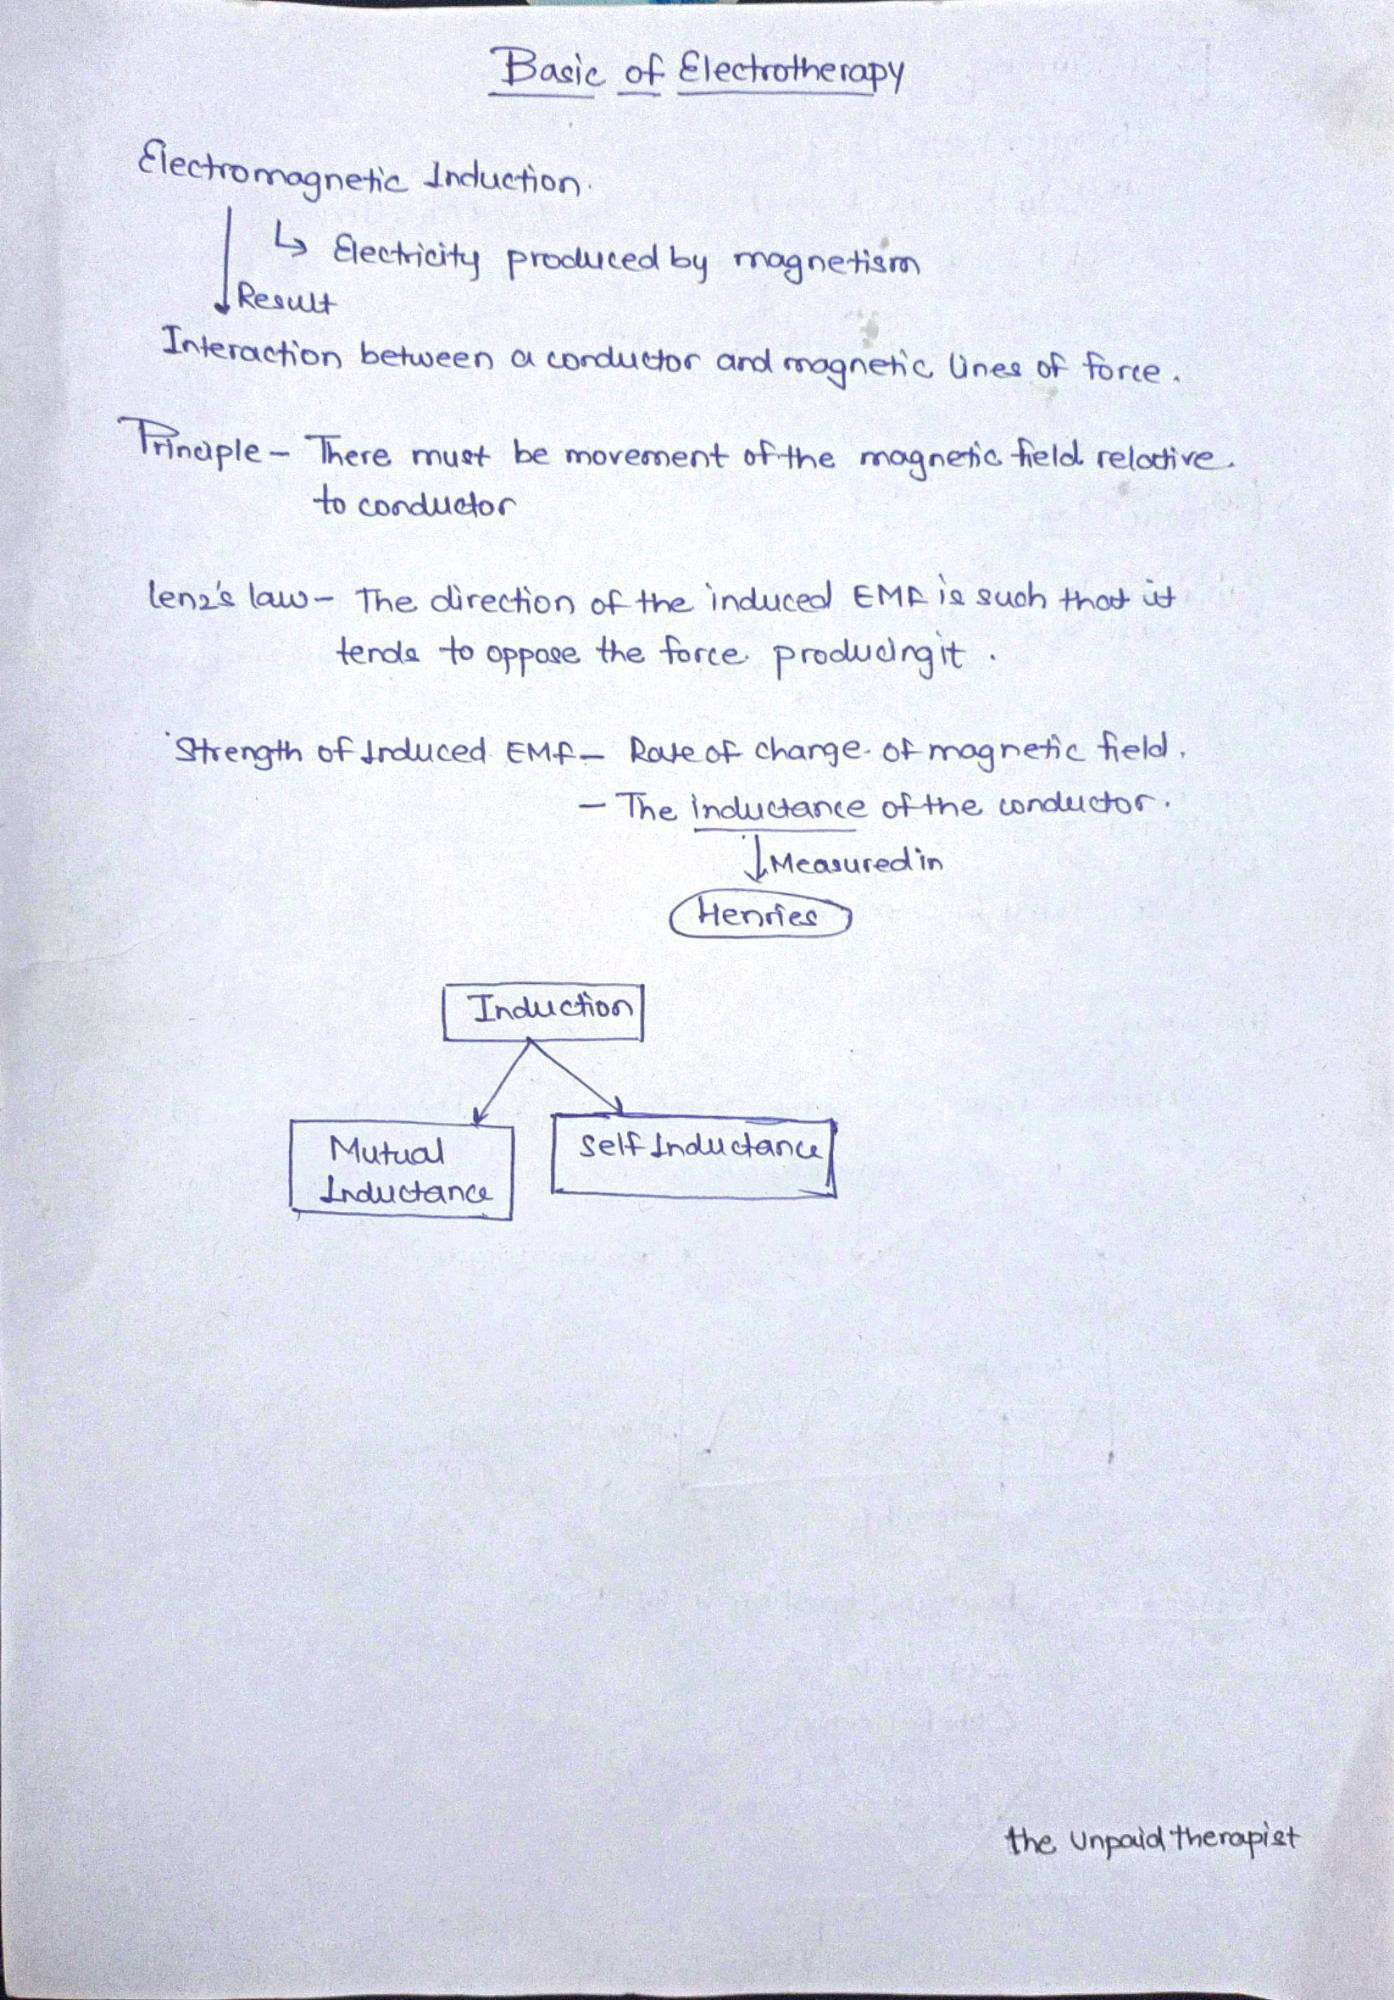 Basic of Electrotherapy
Electromagnetic Induction.
↳ Electricity produced by magnetism
Result
Interaction between a conductor and magnetic lines of force.
Principle - There must be movement of the magnetic field relative.
to conductor
lenz's law - The direction of the induced EMF is such that it
tends to oppose the force producing it.
Strength of Induced EMF - Rate of change of magnetic field.
- The inductance of the conductor.
↓ Measured in
Henries
Induction
Mutual
Inductance
Self Inductance
the Unpaid therapist